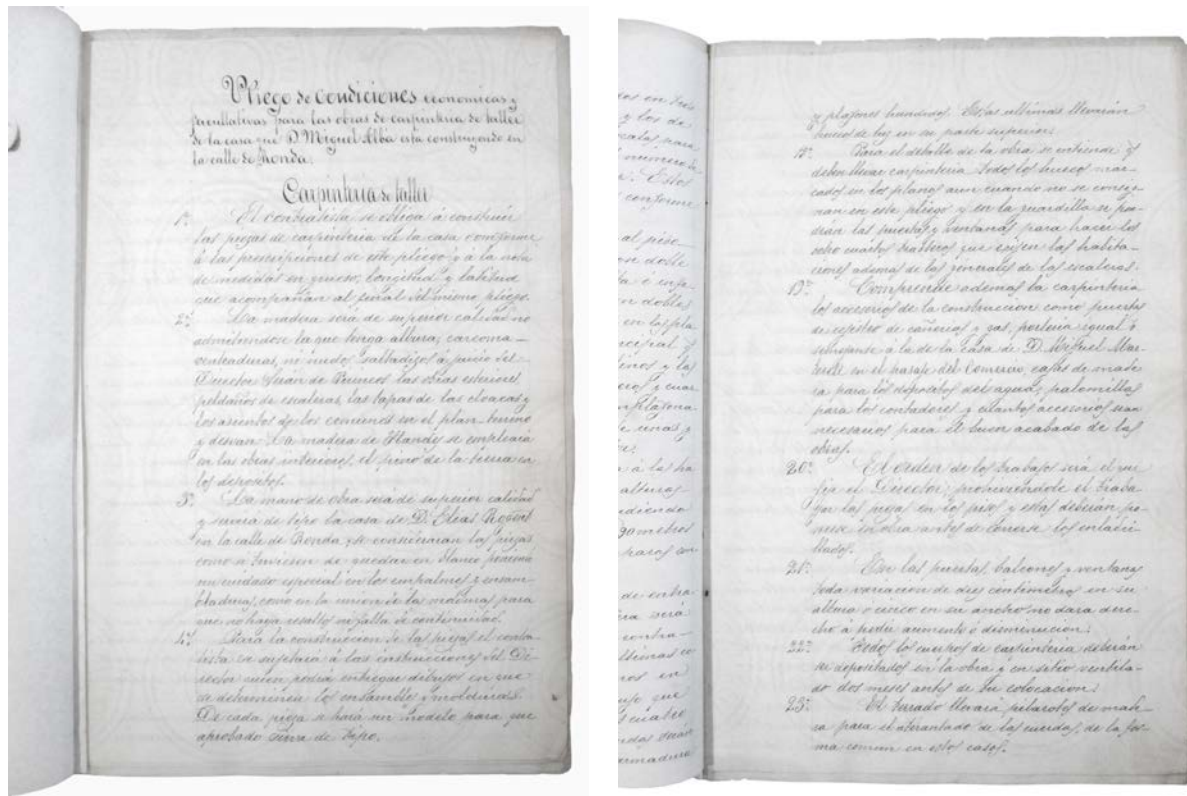 Pliego de Condiciones economicas y
facultativas para las obras de carpinteria de taller
de la casa que D. Miguel Albá está construyendo en
la calle de Ronda.
Carpinteria de taller
1ª El contratista se obliga á construir
las piezas de carpinteria de la casa conforme
á las prescripciones de este pliego y á la nota
de medidas en grueso, longitud y latitud
que acompañan al final del mismo pliego.
2ª La madera será de superior calidad no
admitiendose la que tenga albura, carcoma
venteaduras, ni nudos saltadizos á juicio del
Director. Serán de las obras esteriores
peldaños de escaleras, las tapas de las cloacas y
los asientos de los comunes en el plan-terreno
y desvan. La madera de Flandes se empleará
en las obras interiores, el pino de la tierra en
los depositos.
3ª La mano de obra será de superior calidad
y servirá de tipo la casa de D. Elias Rogent
en la calle de Ronda, se construiran las piezas
como si tuviesen de quedar en blanco poniendo
un cuidado especial en los empalmes y ensam-
bladuras, como en la union de las molduras para
que no haya resalto ni falta de continuidad.
4ª Para la construccion de las piezas el contra-
tista se sujetará á las instrucciones del Di-
rector quien podrá entregar dibujos en que
se determinen los ensambles y molduras.
De cada pieza se hará un modelo para que
aprobado sirva de tipo.
y plafones hundidos. Estas ultimas llevarán
huecos de luz en su parte superior.
18ª Para el detalle de la obra se entiende q
deben llevar carpinteria todos los huecos mar-
cados en los planos aun cuando no se consig-
nan en este pliego y en la guardilla se pon-
drán las puertas y ventanas para hacer los
ocho cuartos trasteros que exijen las habita-
ciones ademas de las generales de las escaleras.
19ª Comprende ademas la carpinteria
los accesorios de la construccion como puertas
de registro de cañerias y gas, porteria igual ó
semejante á la de la casa de D. Miguel
en el pasaje del Comercio, cajas de made-
ra para los depositos del agua, palomillas
para los contadores y cuantos accesorios sean
necesarios para el buen acabado de las
obras.
20ª El orden de los trabajos será el que
fije el Director, prohiviendole el traba-
jar las piezas en los pisos y estas deberán po-
nerse en obra antes de ponerse los enladri-
llados.
21ª En las puertas, balcones y ventanas
toda variacion de diez centimetros en su
altura ó cinco en su ancho no dara dere-
cho á pedir aumento ó disminucion.
22ª Todos los cuerpos de carpinteria deberán
ser depositados en la obra y en sitio ventila-
do dos meses antes de su colocacion.
23ª El terrado llevará pilarotes de made-
ra para el atirantado de las cuerdas, de la for-
ma comun en estos casos.